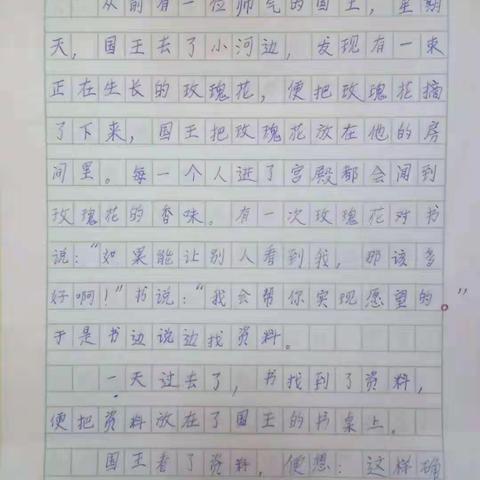 从前有一位帅气的国王，星期
天，国王去了小河边，发现有一束
正在生长的玫瑰花，便把玫瑰花摘
了下来，国王把玫瑰花放在他的房
间里。每一个人进了宫殿都会闻到
玫瑰花的香味。有一次玫瑰花对书
说：“如果能让别人看到我，那该多
好啊！”书说：“我会帮你实现愿望的。”
于是书边说边找资料。
一天过去了，书找到了资料，
便把资料放在了国王的书桌上。
国王看了资料，便想：这样确